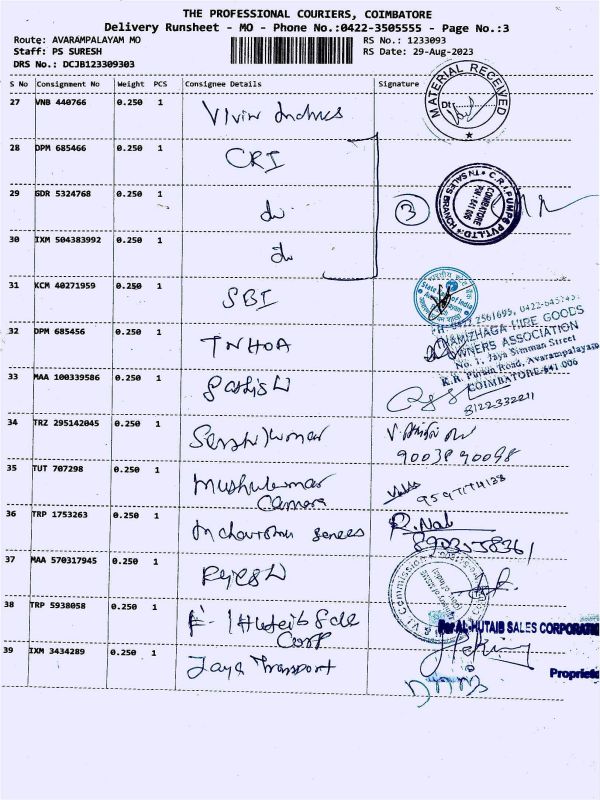 THE PROFESSIONAL COURIERS, COIMBATORE
Delivery Runsheet - MO - Phone No.:0422-3505555 - Page No.:3
Route: AVARAMPALAYAM MO
RS No.: 1233093
Staff: PS SURESH
RS Date: 29-Aug-2023
DRS No.: DCJB123309303
S No Consignment No Weight PCS Consignee Details Signature
MATERIAL RECEIVED
Dt
27 VNB 440766 0.250 1
28 DPM 685466 0.250 1 CRI
29 GDR 5324768 0.250 1 do
3
C.R.I. PUMPS PVT.LTD.
COIMBATORE
30 IXM 504383992 0.250 1 do
31 KCM 40271959 0.250 1 SBI
State Bank of India
32 DPM 685456 0.250 1 TNHOA
PH- 0422 2561695,
HIRE GOODS
OWNERS ASSOCIATION
No. 1, Jaya Simman Street
Road, Avarampalayam
COIMBATORE-641 006
33 MAA 100339586 0.250 1 Sathish
8122332211
34 TRZ 295142045 0.250 1
9003890098
35 TUT 707298 0.250 1 Muthukumar
Camera
36 TRP 1753263 0.250 1
R.
37 MAA 570317945 0.250 1 Rajesh
38 TRP 5938058 0.250 1
Corp
For AL-HUTAIB SALES CORPORATION
39 IXM 3434289 0.250 1 Jaya Transport